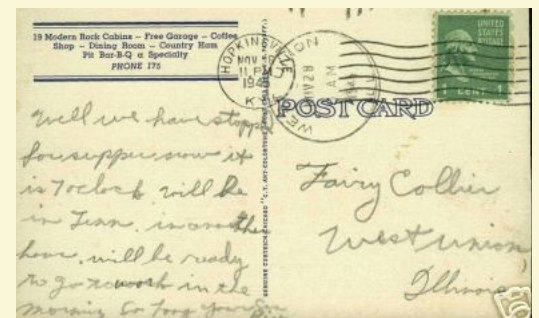 19 Modern Rock Cabins – Free Garage – Coffee
Shop – Dining Room – Country Ham
Pit Bar-B-Q a Specialty
PHONE 175
HOPKINSVILLE
NOV
11 PM
194
KY
WEST UNION
AM
UNITED
STATES
POSTAGE
1 CENT 1
POST CARD
GENUINE CURTEICH-CHICAGO "C.T. ART-COLORTONE"
Well we have stopped
for supper now it
is 7 oclock will be
in Tenn. in another
hour, will be ready
to go to work in the
morning So long your Son
Fairy Collier
West Union,
Illinois